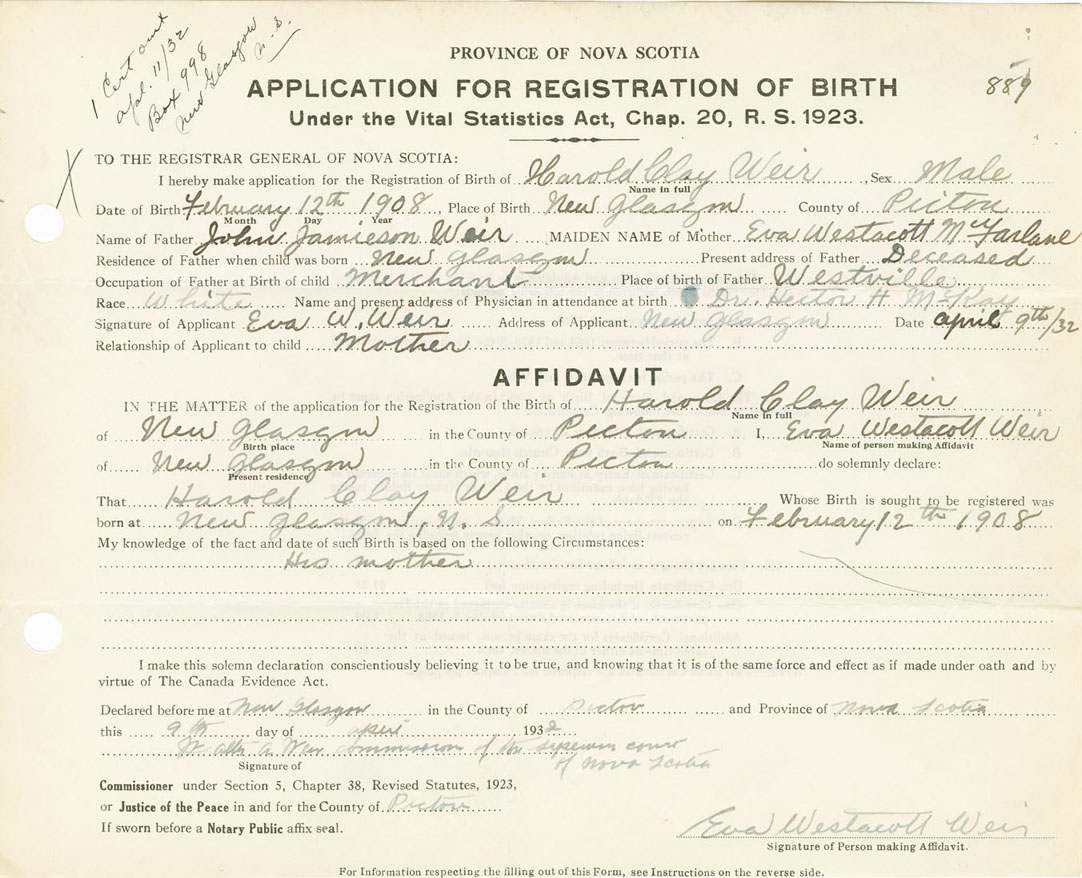 1 Cert out
Apl. 11/32
Box 998
New Glasgow
N. S.
PROVINCE OF NOVA SCOTIA
APPLICATION FOR REGISTRATION OF BIRTH
889
Under the Vital Statistics Act, Chap. 20, R. S. 1923.
X
TO THE REGISTRAR GENERAL OF NOVA SCOTIA:
I hereby make application for the Registration of Birth of Harold Clay Weir, Sex Male
Name in full
Date of Birth February 12th 1908 Place of Birth New Glasgow County of Picton
Month Day Year
Name of Father John Jamieson Weir MAIDEN NAME of Mother Eva Westacott McFarlane
Residence of Father when child was born New Glasgow Present address of Father Deceased
Occupation of Father at Birth of child Merchant Place of birth of Father Westville
Race White Name and present address of Physician in attendance at birth Dr. Hector H McKay
Signature of Applicant Eva W. Weir Address of Applicant New Glasgow Date April 9th/32
Relationship of Applicant to child Mother
AFFIDAVIT
IN THE MATTER of the application for the Registration of the Birth of Harold Clay Weir
Name in full
of New Glasgow in the County of Picton I, Eva Westacott Weir
Birth place Name of person making Affidavit
of New Glasgow in the County of Picton do solemnly declare:
Present residence
That Harold Clay Weir Whose Birth is sought to be registered was
born at New Glasgow, N. S on February 12th 1908
My knowledge of the fact and date of such Birth is based on the following Circumstances:
His mother
I make this solemn declaration conscientiously believing it to be true, and knowing that it is of the same force and effect as if made under oath and by
virtue of The Canada Evidence Act.
Declared before me at New Glasgow in the County of Picton and Province of Nova Scotia
this 9th day of April 1932
A Weir Commission of the Supreme Court
of Nova Scotia
Signature of
Commissioner under Section 5, Chapter 38, Revised Statutes, 1923,
or Justice of the Peace in and for the County of Picton
If sworn before a Notary Public affix seal.
Eva Westacott Weir
Signature of Person making Affidavit.
For Information respecting the filling out of this Form, see Instructions on the reverse side.